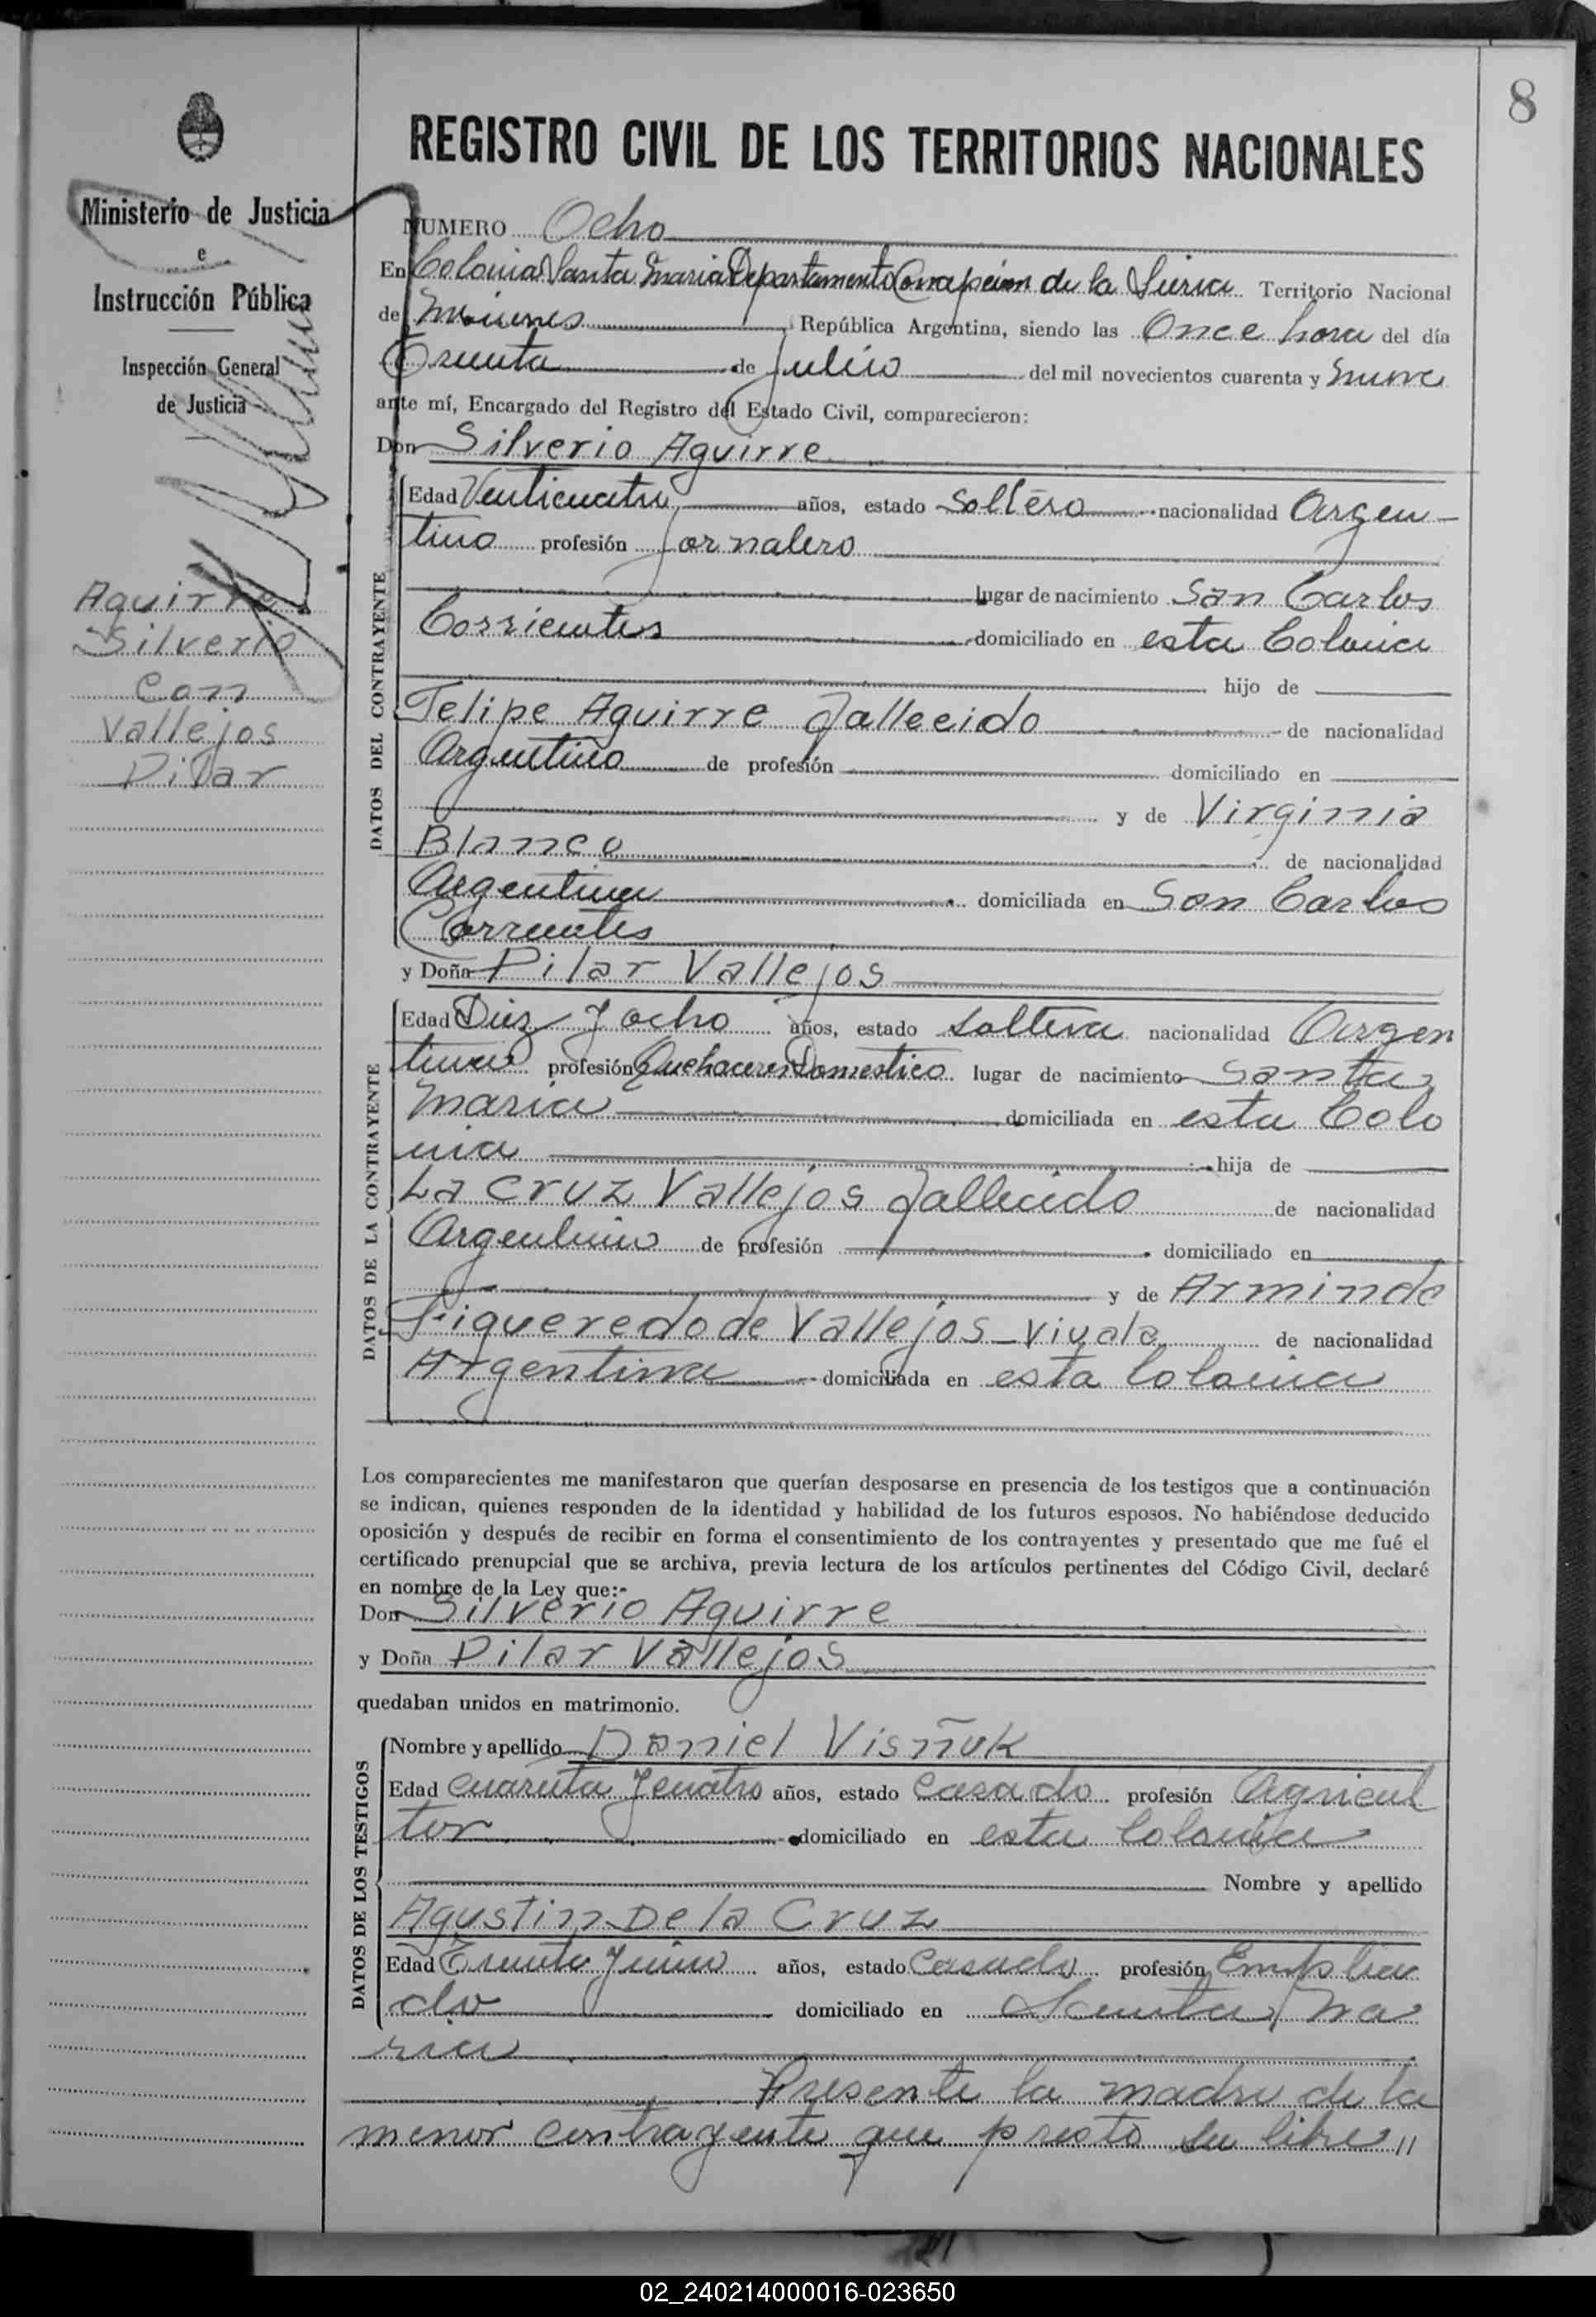 8
REGISTRO CIVIL DE LOS TERRITORIOS NACIONALES
Ministerio de Justicia
e
Instrucción Pública
Inspección General
de Justicia
Aguirre
Silverio
Con
Vallejos
Pilar
NUMERO Ocho
En Colonia Santa Maria Departamento Concepcion de la Sierra Territorio Nacional
de Misiones República Argentina, siendo las Once hora del día
Treinta de Julio del mil novecientos cuarenta y nueve
ante mí, Encargado del Registro del Estado Civil, comparecieron:
Don Silverio Aguirre
DATOS DEL CONTRAYENTE
Edad Venticuatro años, estado Soltero nacionalidad Argen-
tino profesión Jornalero
lugar de nacimiento San Carlos
Corrientes domiciliado en esta Colonia
hijo de
Felipe Aguirre fallecido de nacionalidad
Argentino de profesión domiciliado en
y de Virginia
Blanco de nacionalidad
Argentina domiciliada en San Carlos
Corrientes
y Doña Pilar Vallejos
DATOS DE LA CONTRAYENTE
Edad Diez y ocho años, estado soltera nacionalidad Argen
tina profesión Quehaceres Domestico lugar de nacimiento Santa
Maria domiciliada en esta Colo
nia hija de
La Cruz Vallejos fallecido de nacionalidad
Argentino de profesión domiciliado en
y de Arminda
Figueredo de Vallejos - de nacionalidad
Argentina domiciliada en esta Colonia
Los comparecientes me manifestaron que querían desposarse en presencia de los testigos que a continuación
se indican, quienes responden de la identidad y habilidad de los futuros esposos. No habiéndose deducido
oposición y después de recibir en forma el consentimiento de los contrayentes y presentado que me fué el
certificado prenupcial que se archiva, previa lectura de los artículos pertinentes del Código Civil, declaré
en nombre de la Ley que:-
Don Silverio Aguirre
y Doña Pilar Vallejos
quedaban unidos en matrimonio.
DATOS DE LOS TESTIGOS
Nombre y apellido Daniel Visñuk
Edad Cuarenta y cuatro años, estado Casado profesión Agricul
tor domiciliado en esta Colonia
Nombre y apellido
Agustin De la Cruz
Edad Treinta y años, estado Casado profesión Emplea
do domiciliado en Santa Ma
ria
Presente la madre de la
menor contrayente que presto su libre "
02_240214000016-023650